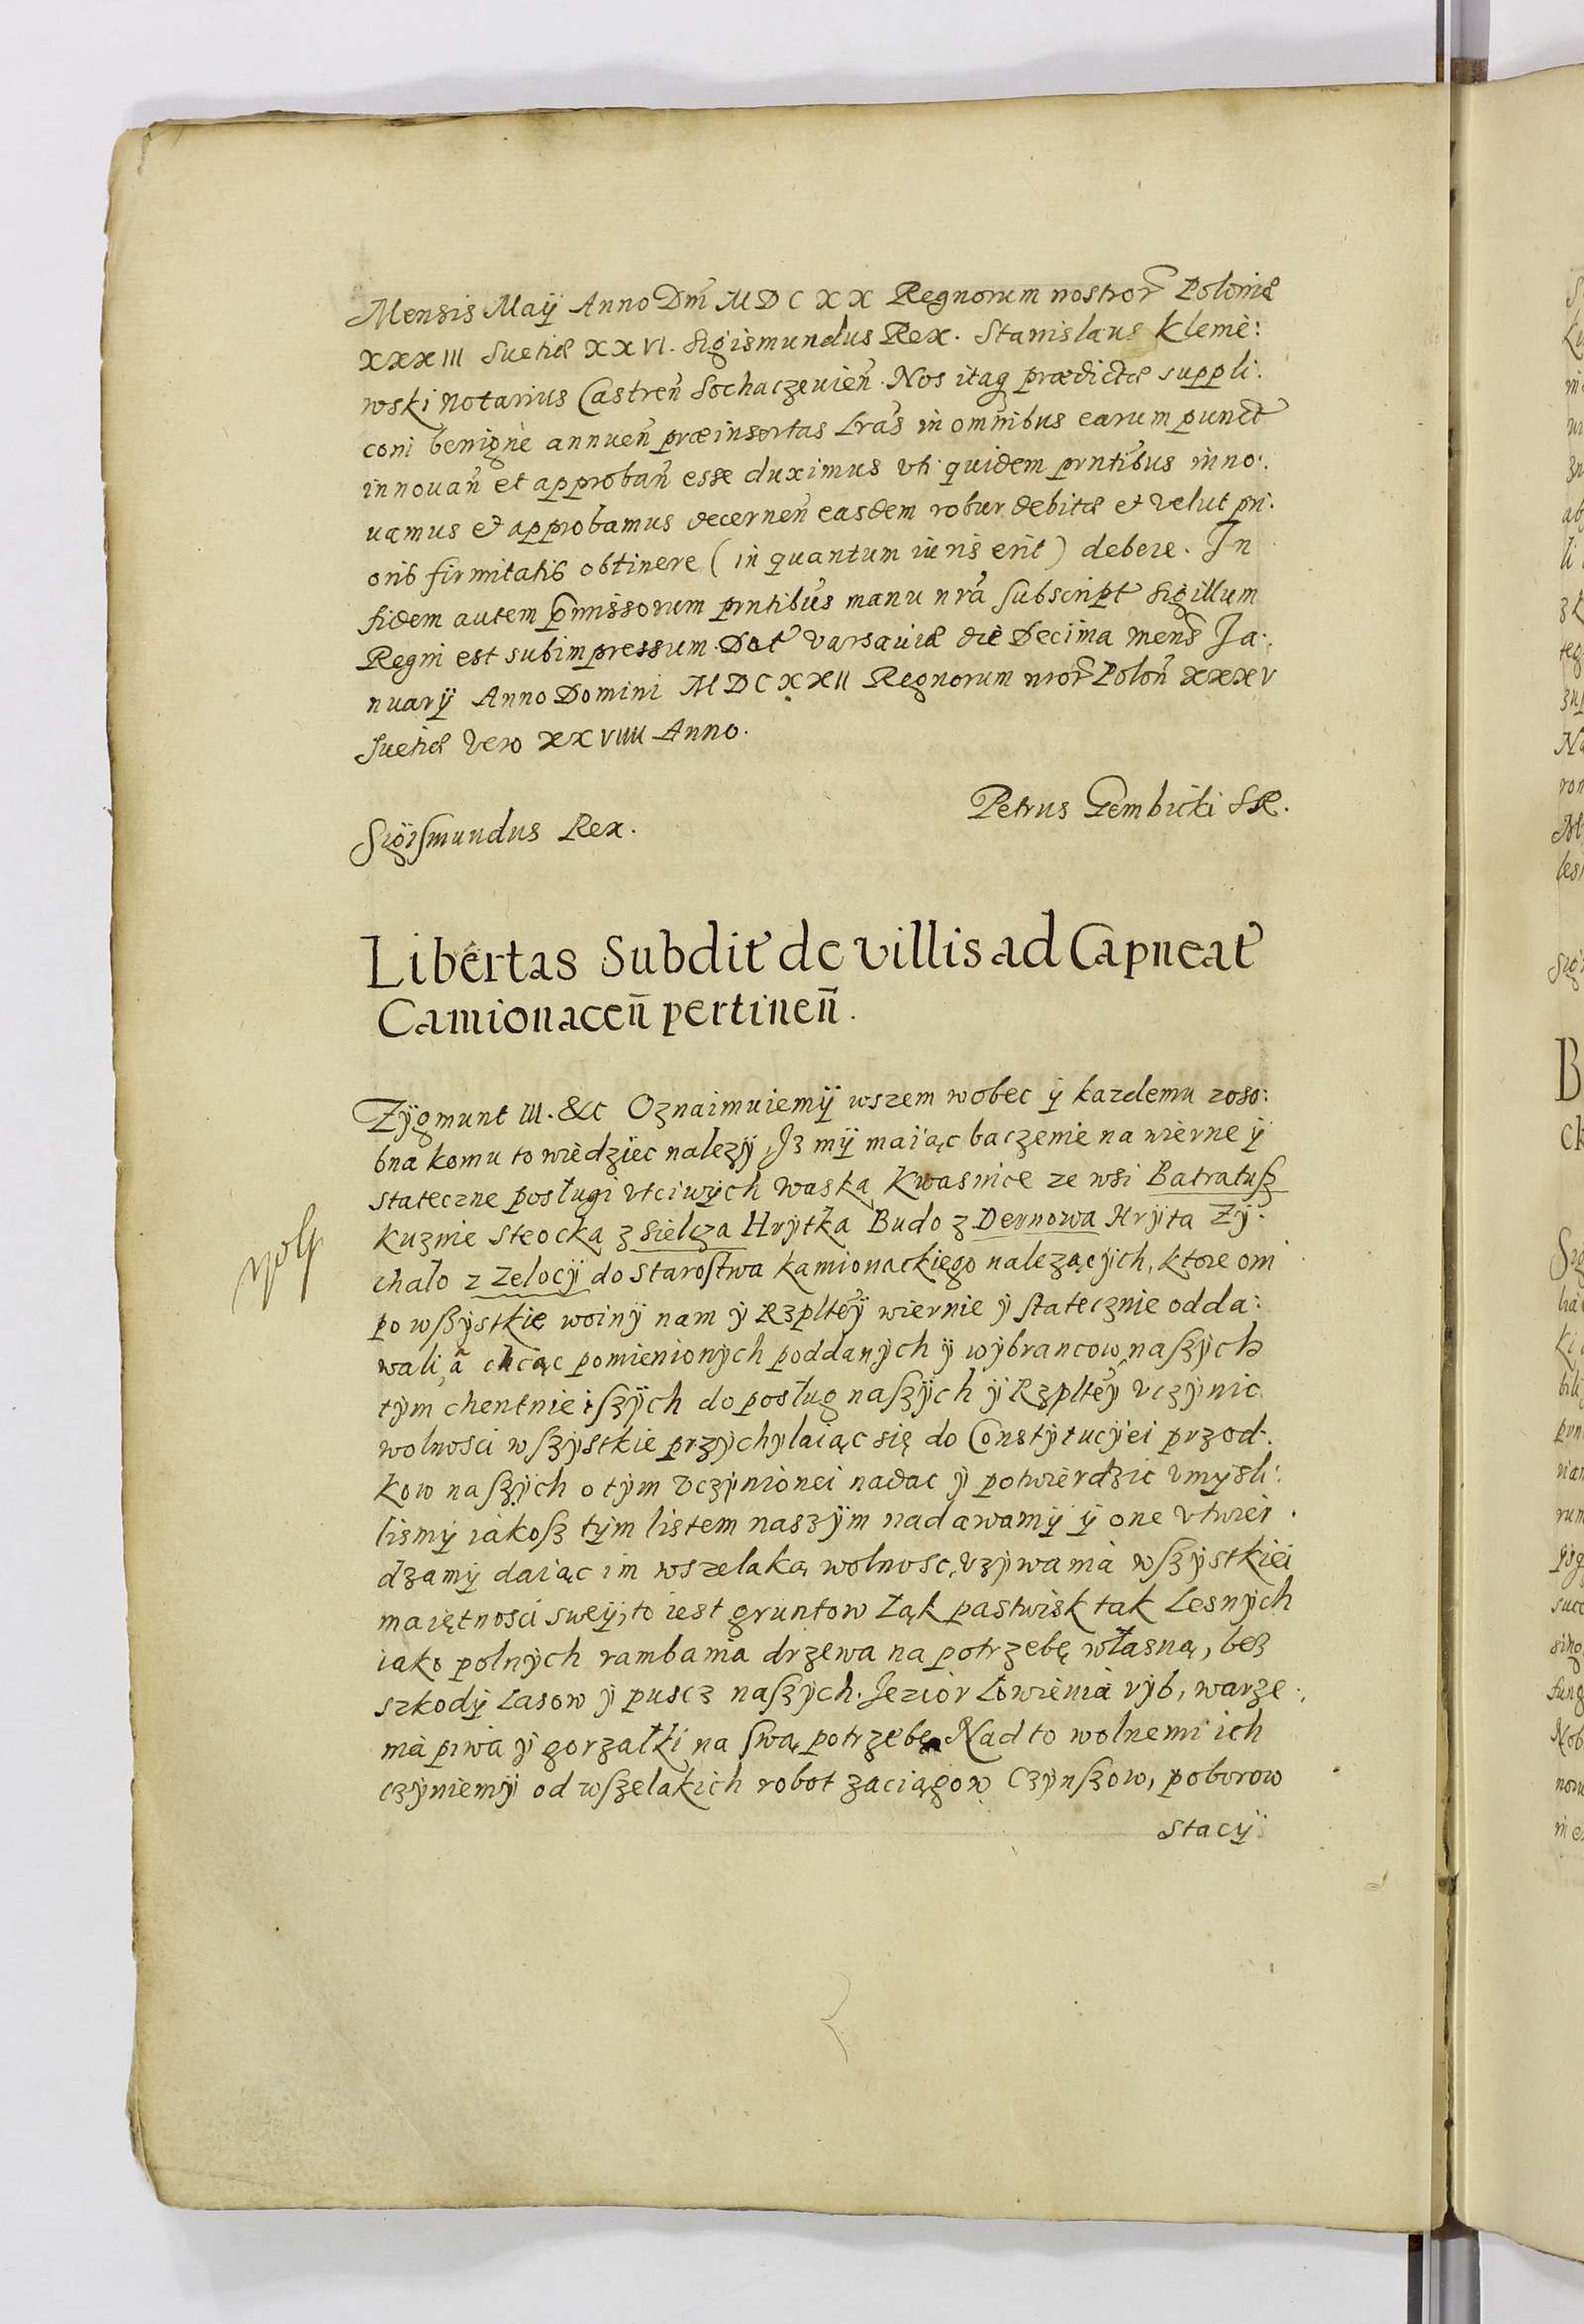 Mensis Maÿ Anno Dm̃ MDCXX Regnorum nostror̃ Poloniæ
XXXIII Suetiæ XXVI. Sigismundus Rex. Stanislaus Klemè:
wski Notarius Castren̄ Sochaczeuien̄. Nos itaq prædictæ suppli:
coni benignè annuen̄ præinsertas Lrãs in omnibus earum punct̃
innouan̄ et approban̄ esse duximus vti quidem prntibus inno:
uamus et approbamus decernen̄ easdem robur debitæ et velut pri:
oris firmitatis obtinere (in quantum iuris erit) debere. In
fidem autem pr̃missorum prntibus manu nrã subscript̃ Sigillum
Regni est subimpressum. Dat̃ Varsauiæ diè Decima mens̃ Ja:
nuarÿ Anno Domini MDCXXII Regnorum nror̃ Polon̄ XXXV
Suetiæ Vero XXVIIII Anno.
Petrus Gembicki SR.
Sigismundus Rex.
Libertas Subdit̃ de villis ad Capneat̃
Camionacen̄ pertinen̄.
Zÿgmunt III. &c Oznaimuiemÿ wszem wobec ÿ kazdemu zoso:
bna komu to wiedziec nalezÿ, Iz mÿ maiąc baczenie na wierne ÿ
stateczne posługi vtciwÿch Waska Kwasnice ze wsi Batratusz
Kuzmie Steocką z Sielcza Hrÿtka Budo z Dernowa Hrÿta Zÿ:
chało z Zelocÿ do Starostwa Kamionackiego nalezącÿch, ktore oni
po wszÿstkie woinÿ nam ÿ Rzpltẽÿ wiernie ÿ statecznie odda:
wali, a chcąc pomienionÿch poddanÿch ÿ wÿbrancow naszÿch
tÿm chentnieiszÿch do posług naszÿch ÿ Rzpltẽÿ vczÿnic
wolnosci wszÿstkie przÿchÿlaiąc się do Constÿtucÿei przod:
kow naszÿch o tÿm vczÿnionei nadac ÿ potwierdzic vmÿsli:
lismÿ iakosz tÿm listem naszÿm nadawamÿ ÿ one vtwier
dzamÿ daiąc im wszelaką wolnosc, vzÿwania wszÿstkiei
maiętnosci sweÿ, to iest gruntow Łąk pastwisk tak Lesnÿch
iako polnÿch rambania drzewa na potrzebę własną, bez
szkodÿ Lasow ÿ puscz naszÿch. Jezior Łowienia rÿb, warze
nia piwa ÿ gorzałki na swą potrzebę Nad to wolnemi ich
czÿniemÿ od wszelakich robot zaciągow Czÿnszow, poborow
Stacÿ